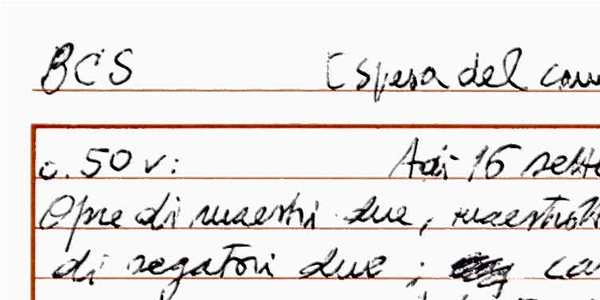 BCS [Spesa del com
c. 50 v: Adì 16 sette
Opre di maestri due, maestro
di segatori due ;